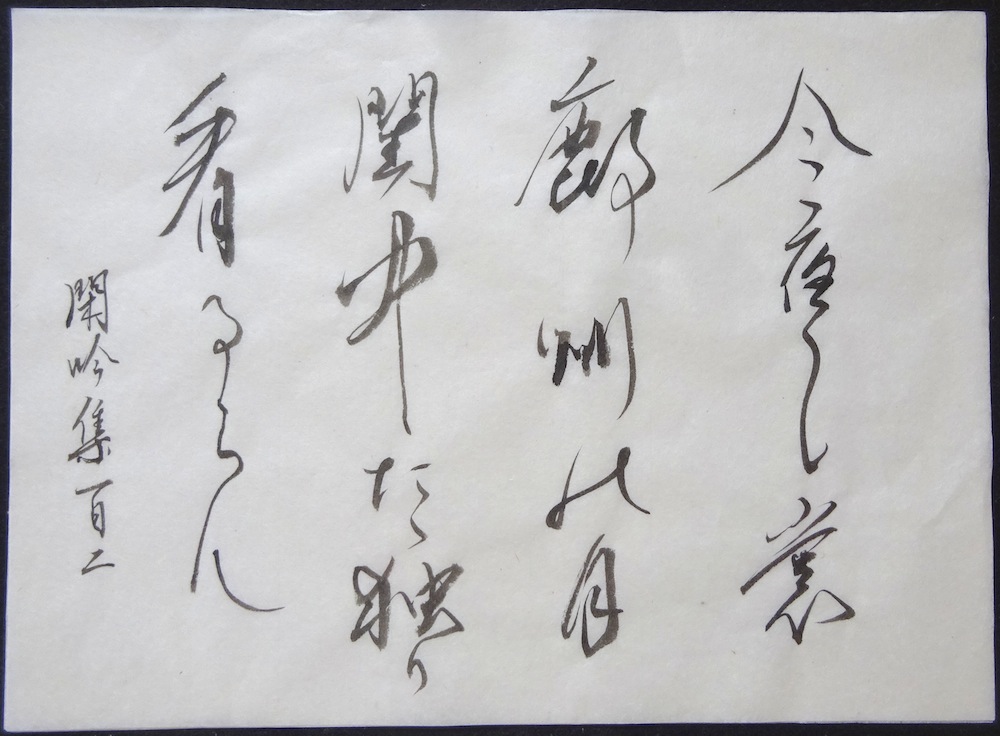 今夜し裳
鄜州の月
閨中たゝ独り
看るらん
閑吟集百二